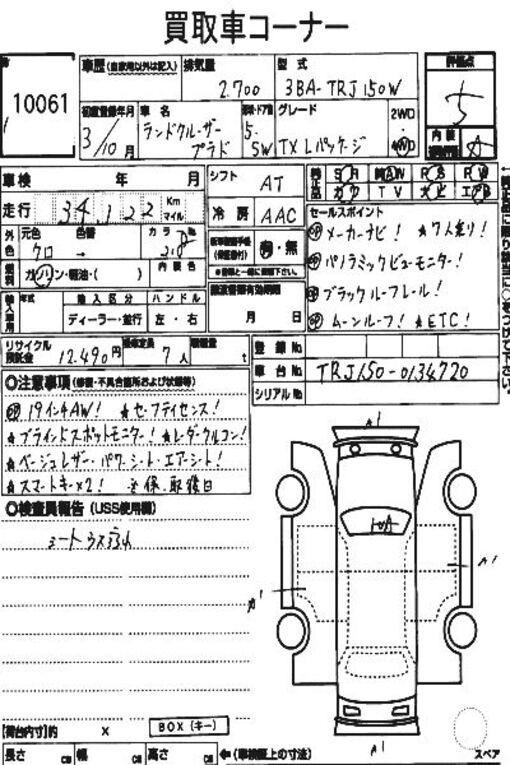 買取車コーナー
10061
車歴 (自家用以外は記入) 排気量 2.700 型式 3BA-TRJ150W
評価点 5
初度登録年月 3/10月 車名 ランドクルーザー プラド 形状・ドア数 5. SW グレード TX Lパッケージ 2WD 4WD
内装 A
車検 年 月 シフト AT
SR AW PS PW
カワ TV エアB
走行 34,122 Km マイル 冷房 AAC
セールスポイント
外色 元色 クロ 色替 → カラーNo. 218
有・無
メーカーナビ! ★7人乗り!
燃料 ガソリン・軽油・( ) 内装色
パノラミックビューモニター!
輸入車用 年式 輸入区分 ハンドル
ディーラー・並行 左・右
月 日
ブラックルーフレール!
ムーンルーフ! ★ETC!
リサイクル預託金 12.490円 乗車定員 7人 積載量 t
登録No.
車台No. TRJ150-0134720
シリアルNo.
○注意事項 (修復・不具合箇所および状態等)
19インチAW! ★セーフティセンス!
★ブラインドスポットモニター! ★レーダークルコン!
★ベージュレザー・パワーシート・エアーシート!
★スマートキー×2! ※保.取後日
○検査員報告 (USS使用欄)
シート
A1
A1
A1
A1
[荷台内寸]約 × BOX(キー)
長さ cm 幅 cm 高さ cm ←(車検証上の寸法)
スペア